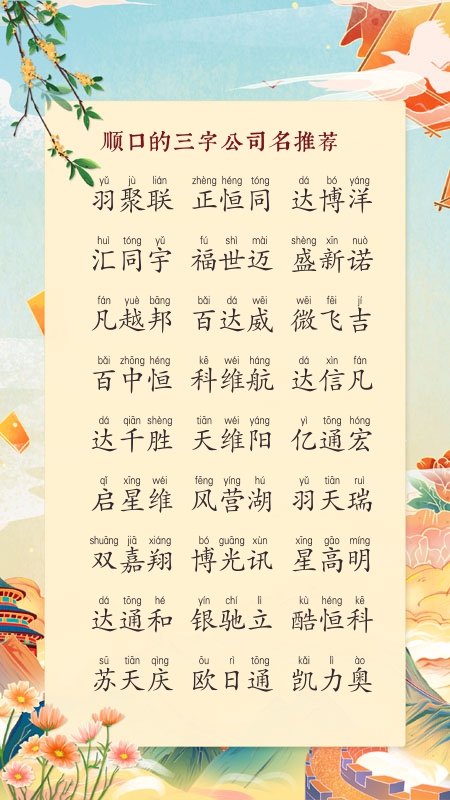 顺口的三字公司名推荐
yǔ jù lián zhèng héng tóng dá bó yáng
羽聚联 正恒同 达博洋
huì tóng yǔ fú shì mài shèng xīn nuò
汇同宇 福世迈 盛新诺
fán yuè bāng bǎi dá wēi wēi fēi jí
凡越邦 百达威 微飞吉
bǎi zhōng héng kē wéi háng dá xìn fán
百中恒 科维航 达信凡
dá qiān shèng tiān wéi yáng yì tōng hóng
达千胜 天维阳 亿通宏
qǐ xīng wéi fēng yíng hú yǔ tiān ruì
启星维 风营湖 羽天瑞
shuāng jiā xiáng bó guāng xùn xīng gāo míng
双嘉翔 博光讯 星高明
dá tōng hé yín chí lì kù héng kē
达通和 银驰立 酷恒科
sū tiān qìng ōu rì tōng kǎi lì ào
苏天庆 欧日通 凯力奥